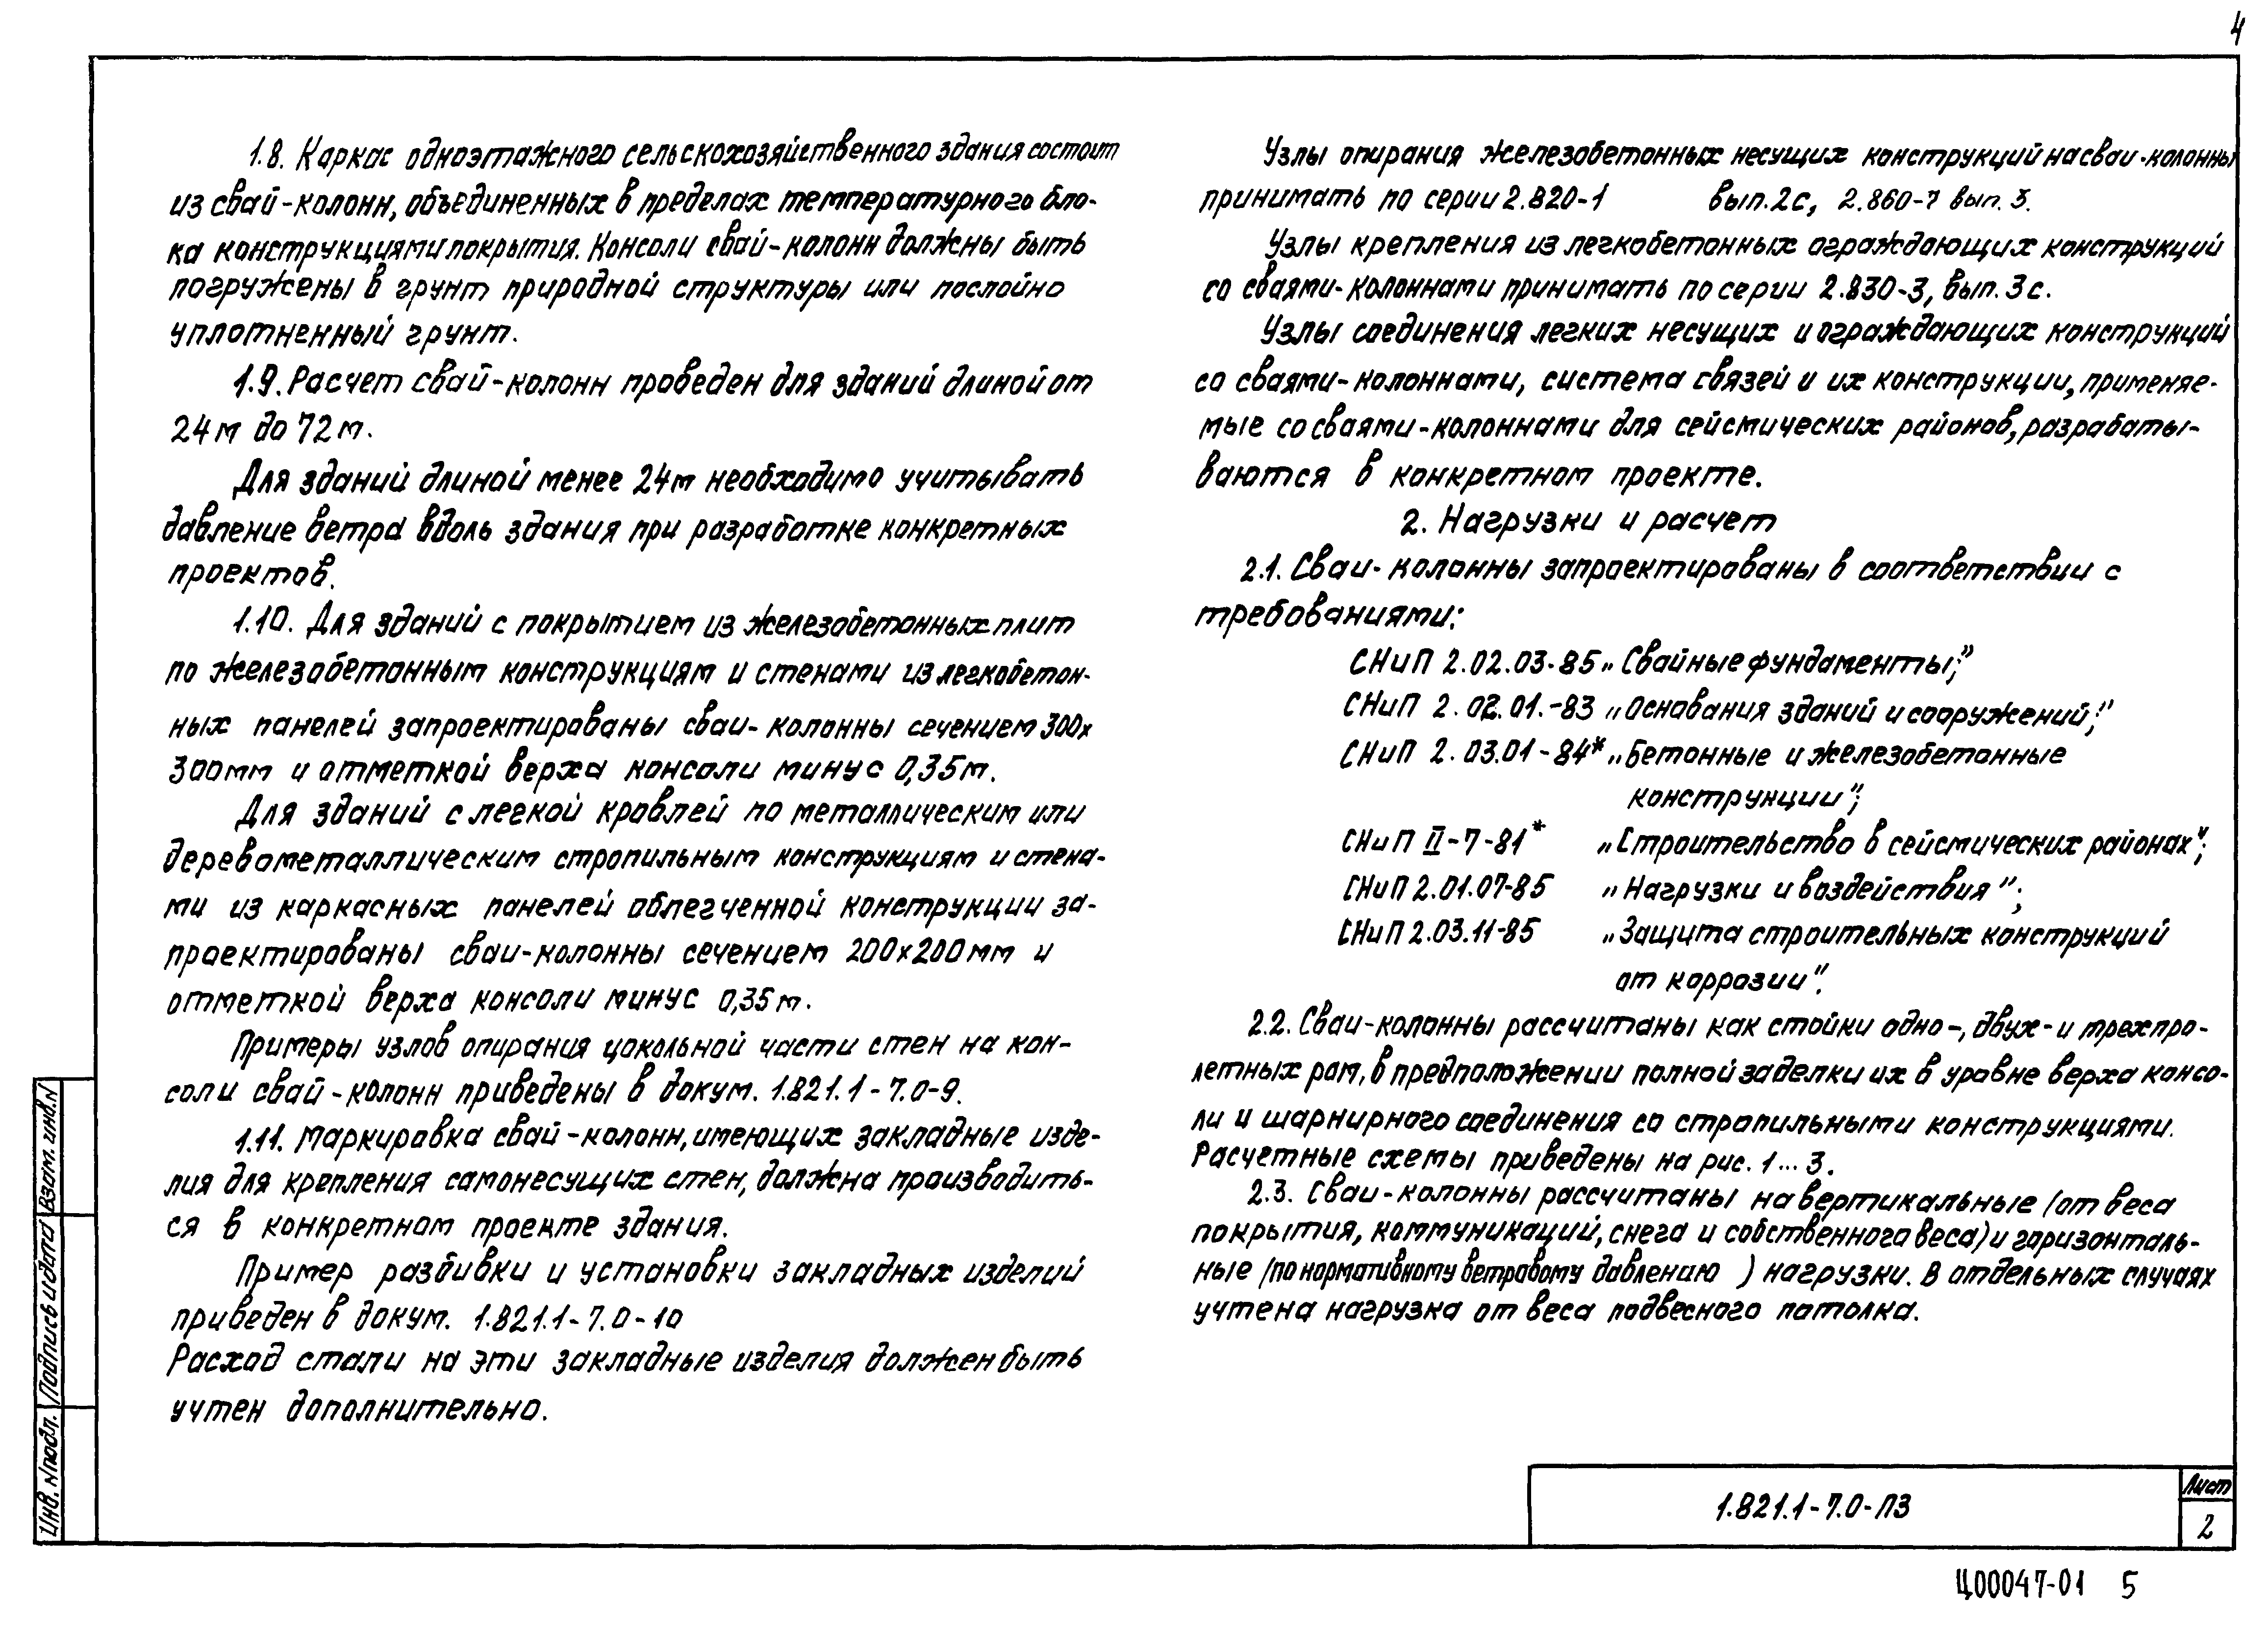 4
1.8. Каркас одноэтажного сельскохозяйственного здания состоит
из свай-колонн, объединенных в пределах температурного бло-
ка конструкциями покрытия. Консоли свай-колонн должны быть
погружены в грунт природной структуры или послойно
уплотненный грунт.
1.9. Расчет свай-колонн проведен для зданий длиной от
24м до 72м.
Для зданий длиной менее 24м необходимо учитывать
давление ветра вдоль здания при разработке конкретных
проектов.
1.10. Для зданий с покрытием из железобетонных плит
по железобетонным конструкциям и стенами из легкобетон-
ных панелей запроектированы сваи-колонны сечением 300х
300мм и отметкой верха консоли минус 0,35м.
Для зданий с легкой кровлей по металлическим или
деревометаллическим стропильным конструкциям и стена-
ми из каркасных панелей облегченной конструкции за-
проектированы сваи-колонны сечением 200х200мм и
отметкой верха консоли минус 0,35м.
Примеры узлов опирания цокольной части стен на кон-
соли свай-колонн приведены в докум. 1.821.1-7.0-9.
1.11. Маркировка свай-колонн, имеющих закладные изде-
лия для крепления самонесущих стен, должна производить-
ся в конкретном проекте здания.
Пример разбивки и установки закладных изделий
приведен в докум. 1.821.1-7.0-10
Расход стали на эти закладные изделия должен быть
учтен дополнительно.
Узлы опирания железобетонных несущих конструкций на сваи-колонны
принимать по серии 2.820-1 вып.2с, 2.860-7 вып. 3.
Узлы крепления из легкобетонных ограждающих конструкций
со сваями-колоннами принимать по серии 2.830-3, вып. 3с.
Узлы соединения легких несущих и ограждающих конструкций
со сваями-колоннами, система связей и их конструкции, применяе-
мые со сваями-колоннами для сейсмических районов, разрабаты-
ваются в конкретном проекте.
2. Нагрузки и расчет
2.1. Сваи-колонны запроектированы в соответствии с
требованиями:
СНиП 2.02.03-85 „Свайные фундаменты;”
СНиП 2.02.01.-83 „Основания зданий и сооружений;”
СНиП 2.03.01-84* „Бетонные и железобетонные
конструкции”;
СНиП II-7-81* „Строительство в сейсмических районах”;
СНиП 2.01.07-85 „Нагрузки и воздействия”;
СНиП 2.03.11-85 „Защита строительных конструкций
от коррозии”.
2.2. Сваи-колонны рассчитаны как стойки одно-, двух- и трехпро-
летных рам, в предположении полной заделки их в уровне верха консо-
ли и шарнирного соединения со стропильными конструкциями.
Расчетные схемы приведены на рис. 1...3.
2.3. Сваи-колонны рассчитаны на вертикальные (от веса
покрытия, коммуникаций, снега и собственного веса) и горизонталь-
ные (по нормативному ветровому давлению ) нагрузки. В отдельных случаях
учтена нагрузка от веса подвесного потолка.
Инв. № подл. Подпись и дата Взам. инв. №
1.821.1-7.0-ПЗ
Лист
2
Ц00047-01 5